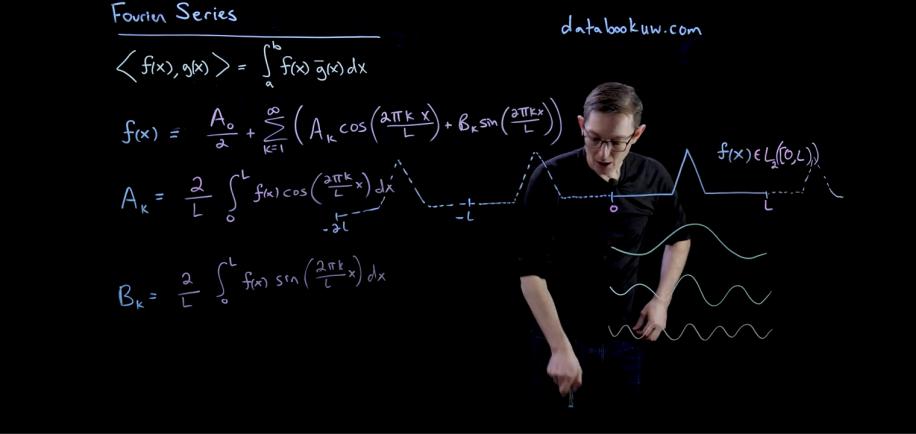 Fourier Series
databookuw.com
⟨ f(x), g(x) ⟩ = ∫_a^b f(x) ḡ(x) dx
f(x) = A₀/2 + Σ_{k=1}^∞ ( A_k cos(2πk x/L) + B_k sin(2πkx/L) )
f(x) ∈ L₂([0,L))
A_k = 2/L ∫_0^L f(x) cos(2πk/L x) dx
-2L -L 0 L
B_k = 2/L ∫_0^L f(x) sin(2πk/L x) dx